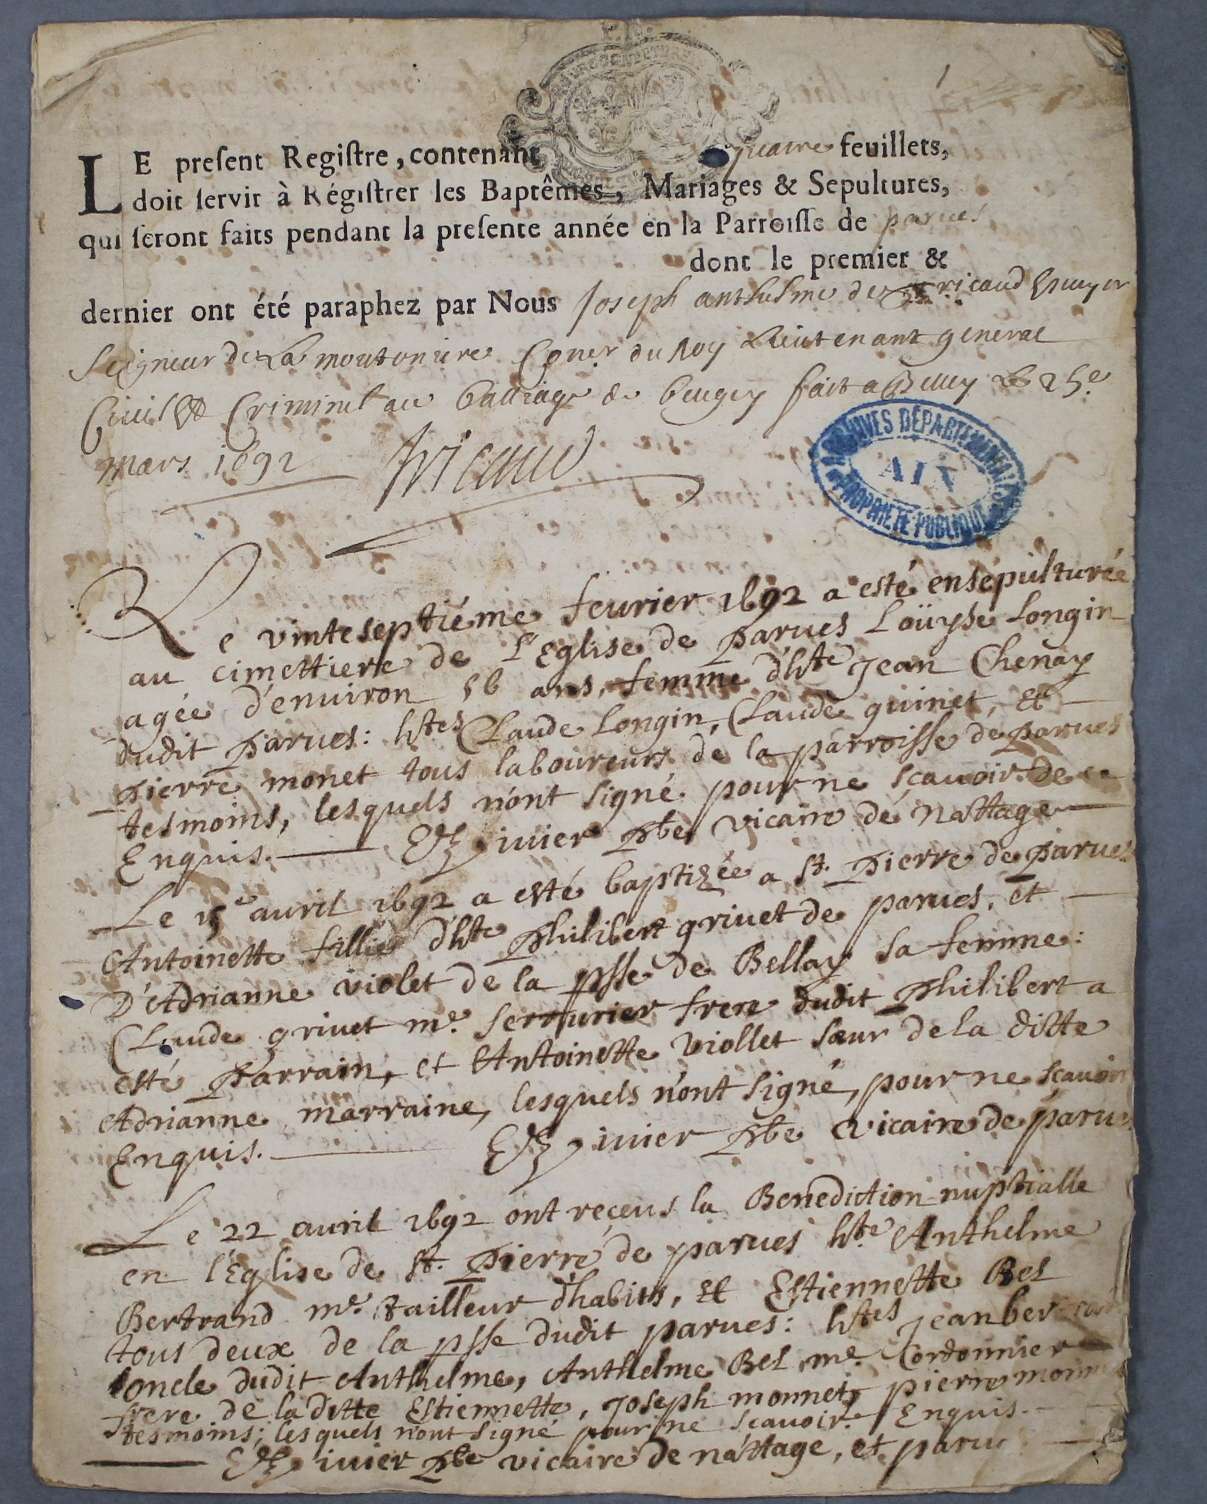 LE present Registre, contenant quatre feuillets,
doit servir à Régistrer les Baptêmes, Mariages & Sepultures,
qui seront faits pendant la presente année en la Parroisse de parues
dont le premier &
dernier ont été paraphez par Nous Joseph anthelme de Tricaud Escuyer
Seigneur de La moutoniere Coner du Roy Lieutenant general
Civil & Criminel au balliage de beugey fait a Belley le 25e
mars 1692 Tricaud
ARCHIVES DÉPARTEMENTALES
AIN
PROPRIÉTÉ PUBLIQUE
Le vinteseptiéme feurier 1692 a esté ensépulturée
au cimettiere de l'Eglise de Parues Loüyse Longin
agée d'enuiron 56 ans, femme d'hte Jean Chenay
dudit Parues: htes Claude Longin, Claude guinet, et
Pierre monet tous laboureurs de la parroisse de Parues
tesmoins, lesquels n'ont signé pour ne sçauoir de ce
Enquis. iuier Pbe vicaire de Nattage
Le 15e auril 1692 a esté baptizée a St. Pierre de Parues
Antoinette fillie d'hte Philibert griuet de parues, et
D'Adrianne violet de la psse de Bellay sa femme:
Claude griuet me. serrurier frere dudit Philibert a
esté Parrain, et Antoinette viollet sœur de la ditte
Adrianne marraine, lesquels n'ont signé, pour ne scauoir
Enquis. iuier Pbe vicaire de paru
Le 22 auril 1692 ont receus la Benediction nuptialle
en l'Eglise de St. Pierre de parues hte Anthelme
Bertrand me. tailleur d'habits, et Estiennette Bel
tous deux de la psse dudit parues: htes Jean ber
loncle dudit Anthelme, Anthelme Bel me. Cordonnier
frere de la ditte Estiennette, Joseph monnet, pierre monn
tesmoins; lesquels n'ont signé pour ne scauoir Enquis.
iuier Pbe vicaire de nattage, et paru